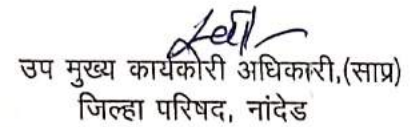 उप मुख्य कार्यकारी अधिकारी,(साप्र)
जिल्हा परिषद, नांदेड